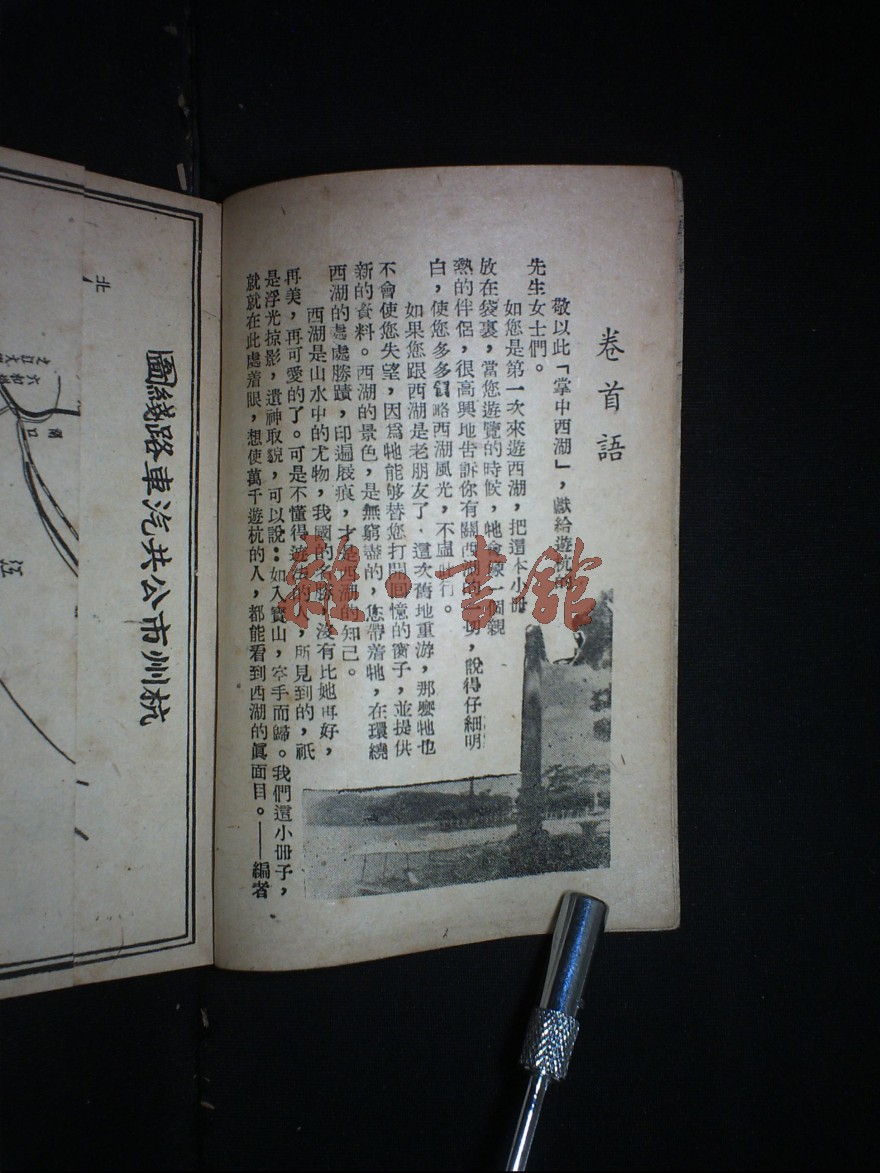 卷首語
敬以此「掌中西湖」，獻給遊杭的
先生女士們。
如您是第一次來遊西湖，把這本小冊
放在袋裏，當您遊覽的時候，牠會像一個親
熱的伴侶，很高興地告訴你有關西湖的一切，說得仔細明
白，使您多多領略西湖風光，不虛此行。
如果您跟西湖是老朋友了．這次舊地重游，那麼牠也
不會使您失望，因爲牠能够替您打開回憶的窗子，並提供
新的資料。西湖的景色，是無窮盡的，您帶着牠，在環繞
西湖的處處勝蹟，印遍屐痕，才是西湖的知己。
西湖是山水中的尤物，我國的名勝，沒有比她再好，
再美，再可愛的了。可是不懂得遊法的人，所見到的，祇
是浮光掠影，遺神取貌，可以說：如入寶山，空手而歸。我們這小冊子，
就就在此處着眼，想使萬千遊杭的人，都能看到西湖的眞面目。——編者
杭州市公共汽車路綫圖
北
六和塔
之江大
閘口
江
龍·書館